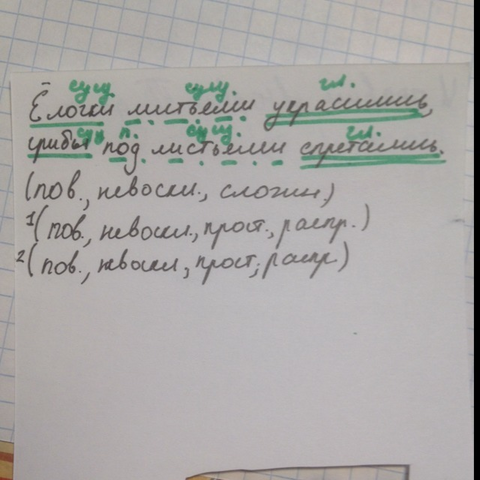 сущ. сущ. гл.
Ёлочки листьями украсились,
сущ. п. сущ. гл.
грибы под листьями спрятались.
(пов., невоскл., сложн)
1(пов., невоскл., прост., распр.)
2(пов., невоскл, прост, распр)